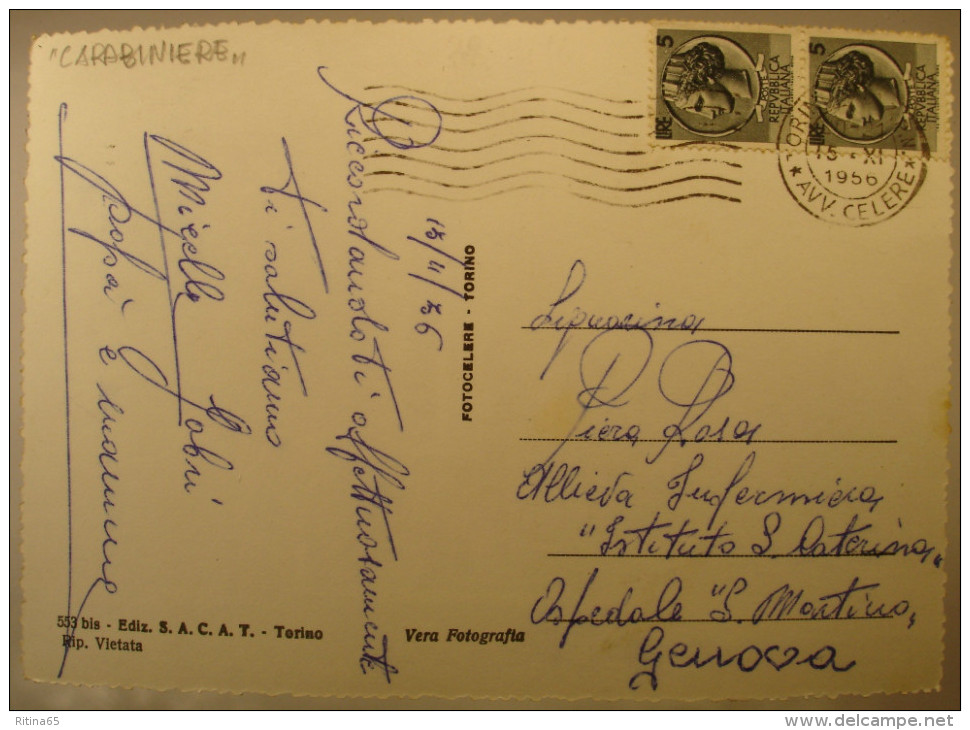 "CARABINIERE"
5
LIRE
REPVBBLICA
ITALIANA
5
LIRE
REPVBBLICA
ITALIANA
XI
1956
* AVV. CELERE *
Riccordandoti affettuosamente
Ti salutiamo
Gabri
papà e mamma
FOTOCELERE - TORINO
Signorina
Piera Rosa
Allieva Infermiera
"Istituto S. Caterina"
Ospedale "S. Martino"
Genova
553 bis - Ediz. S. A. C. A. T. - Torino
Rip. Vietata
Vera Fotografia
Ritina65
www.delcampe.net